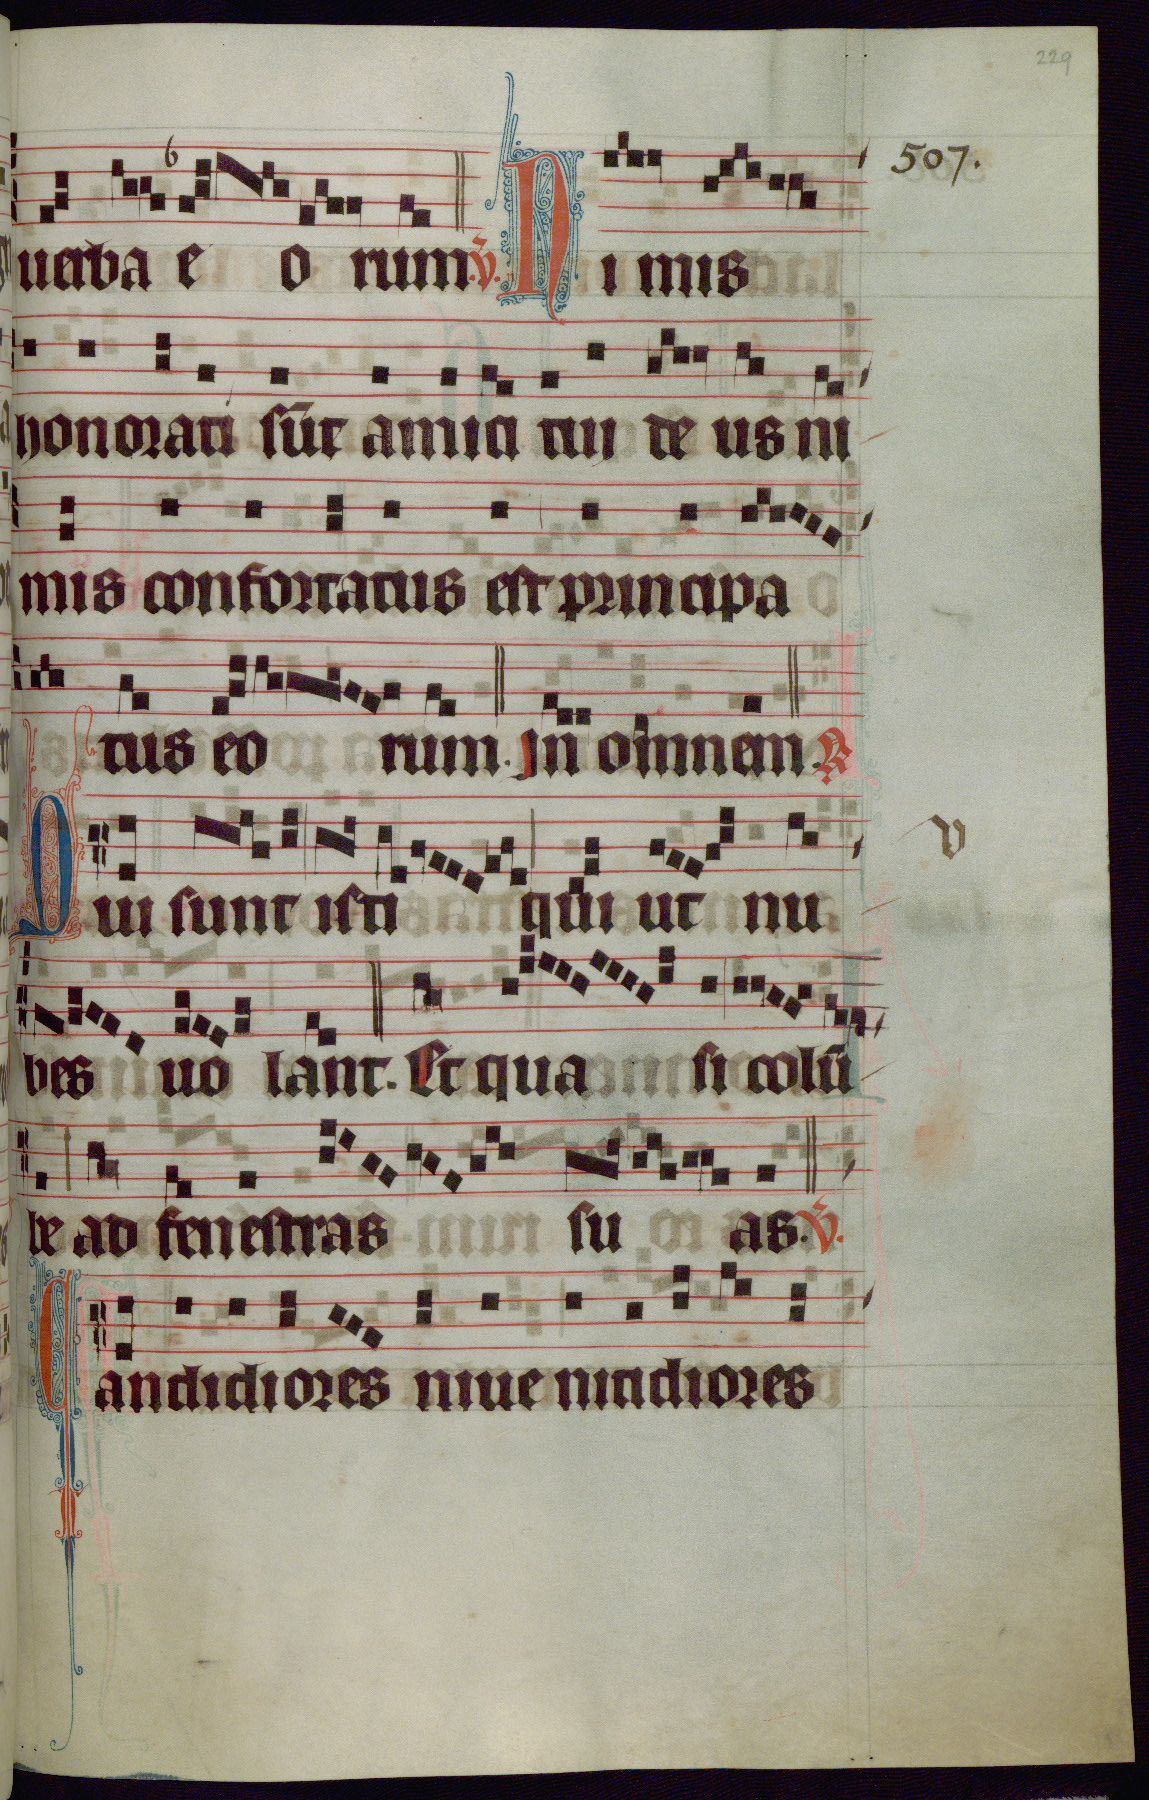 229
507.
uerba e o rum. V̄. Ni mis
honorati sūt amici tui de us ni
mis confortatus est principa
tus eo rum. In omnem. R
Qui sunt isti qui ut nu
v
bes uo lant. Et qua si colū
be ad fenestras su as. V̄.
Candidiores niue nitidiores